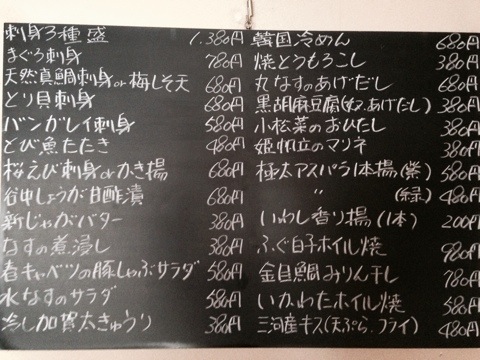 刺身3種盛 1.380円
まぐろ刺身 780円
天然真鯛刺身or梅しそ天 680円
とり貝刺身 680円
バンガレイ刺身 580円
とび魚たたき 480円
桜えび刺身orかき揚 680円
谷中しょうが甘酢漬 680円
新じゃがバター 380円
なすの煮浸し 380円
春キャベツの豚しゃぶサラダ 580円
水なすのサラダ 580円
冷し加賀太きゅうり 380円
韓国冷めん 680円
焼とうもろこし 380円
丸なすのあげだし 380円
黒胡麻豆腐(奴.あげだし) 380円
小松菜のおひたし 380円
姫帆立のマリネ 380円
極太アスパラ1本揚(紫) 580円
〃 (緑) 480円
いわし香り揚(1本) 200円
ふぐ白子ホイル焼 980円
金目鯛みりん干し 780円
いかわたホイル焼 580円
三河産キス(天ぷら.フライ) 480円